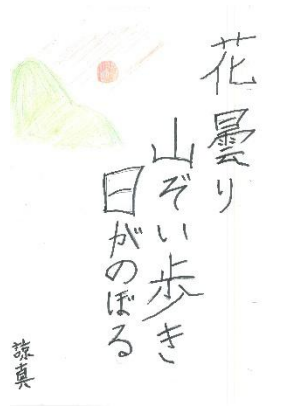 花曇り
山ぞい歩き
日がのぼる
諒真